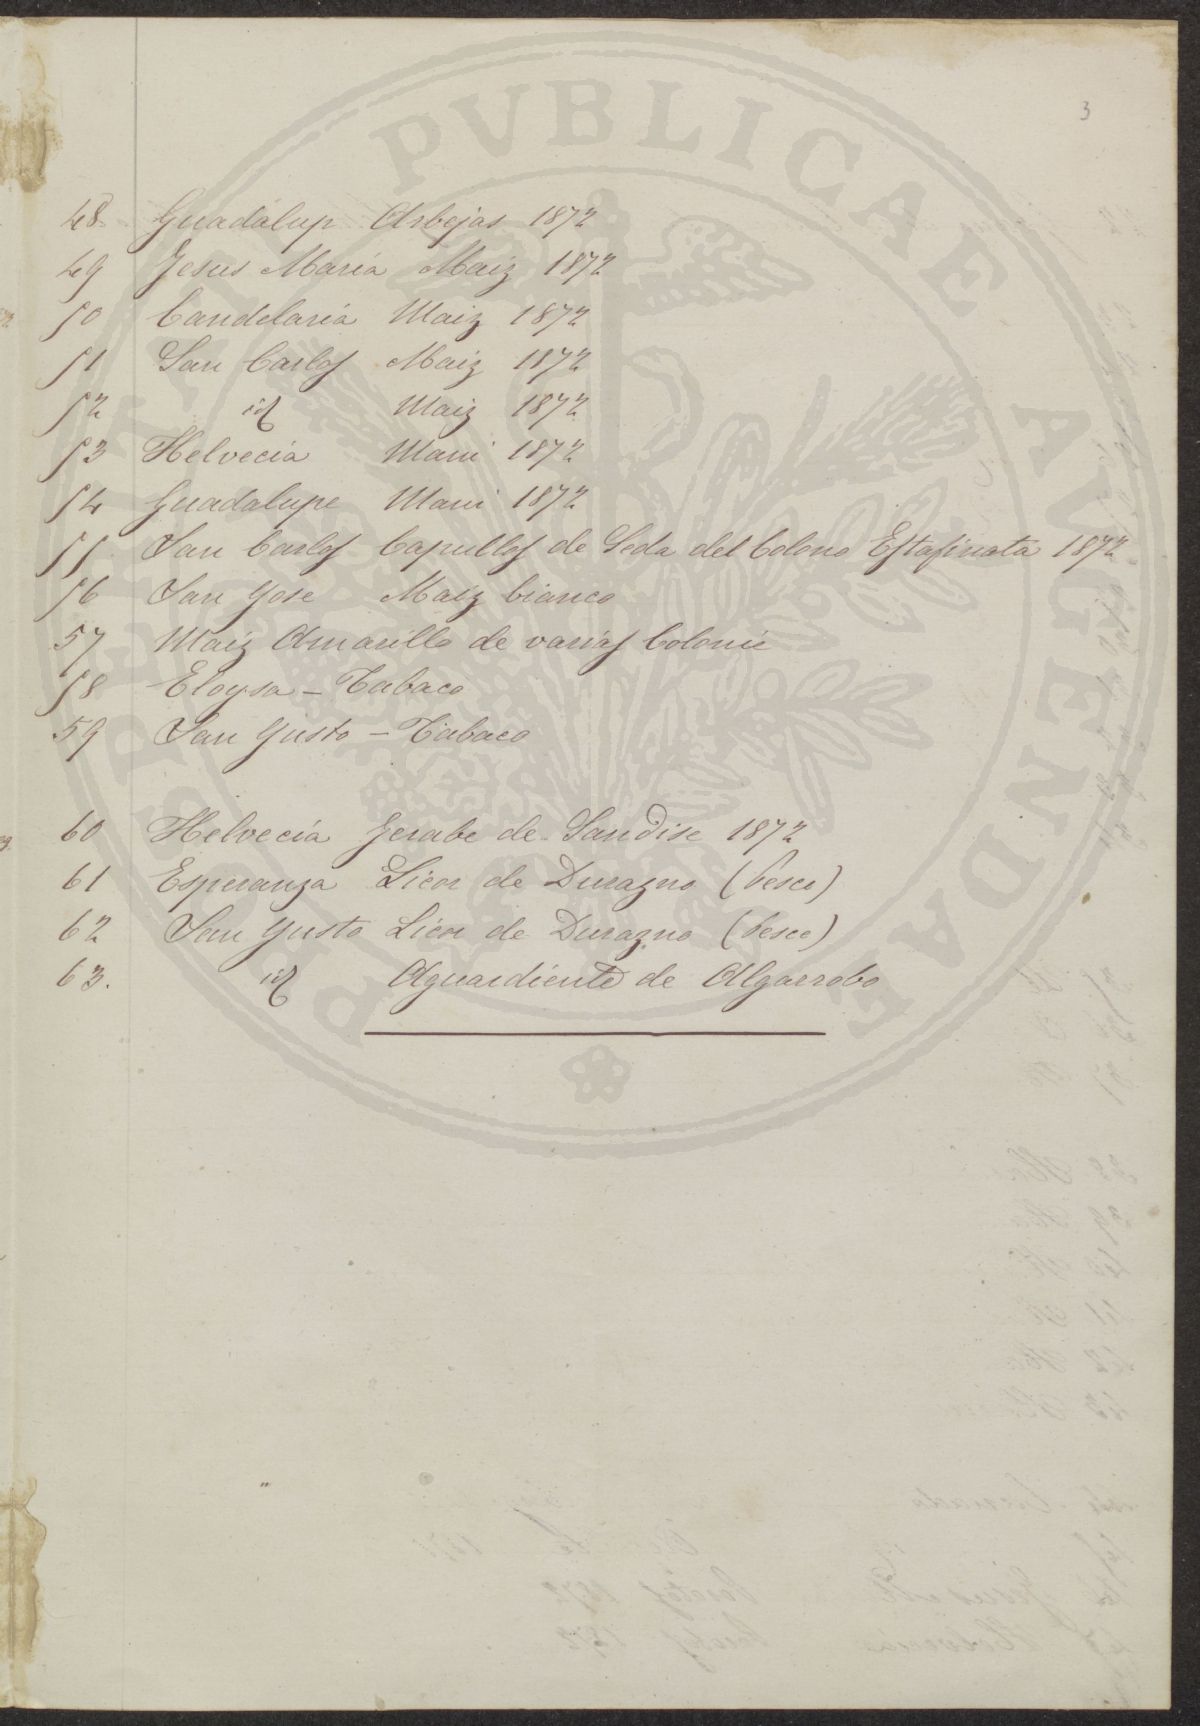 3
48. Guadalup Arbejas 1872
49 Jesus Maria Maiz 1872
50 Candelaria Maiz 1872
51 San Carlos Maiz 1872
52 id Maiz 1872
53 Helvecia Mani 1872
54 Guadalupe Mani 1872
55 San Carlos Capullos de Seda del Colono 1872
56 San Jose Maiz bianco
57 Maiz Amarillo de varias Colonie
58 Eloysa - Tabaco
59 San Gusto - Tabaco
60 Helvecia Jerabe de Sandise 1872
61 Esperanza Licor de Durazno (besce)
62 San Gusto Licor de Durazno (besce)
63. id Aguardiente de Algarrobo
PVBLICAE AVGENDAE